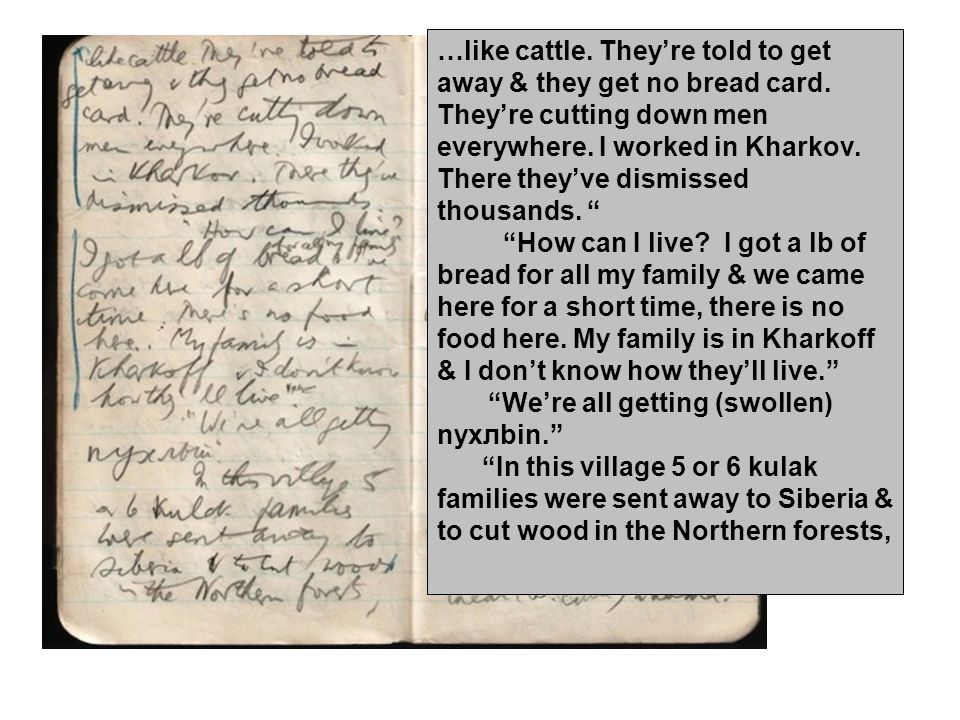 like cattle. They're told to
get away & they get no bread
card. They're cutting down
men everywhere. I worked
in Kharkov. There they've
dismissed thousands.
"How can I live?
for all my family
I got a lb of bread & I've
come here for a short
time. There's no food
here. My family is in
Kharkoff & I don't know
how they'll live"
"We're all getting
In this village 5
or 6 Kulak families
were sent away to
Siberia & to cut wood
in the Northern forests,
…like cattle. They’re told to get
away & they get no bread card.
They’re cutting down men
everywhere. I worked in Kharkov.
There they’ve dismissed
thousands. “
“How can I live? I got a lb of
bread for all my family & we came
here for a short time, there is no
food here. My family is in Kharkoff
& I don’t know how they’ll live.”
“We’re all getting (swollen)
nyxлbin.”
“In this village 5 or 6 kulak
families were sent away to Siberia &
to cut wood in the Northern forests,